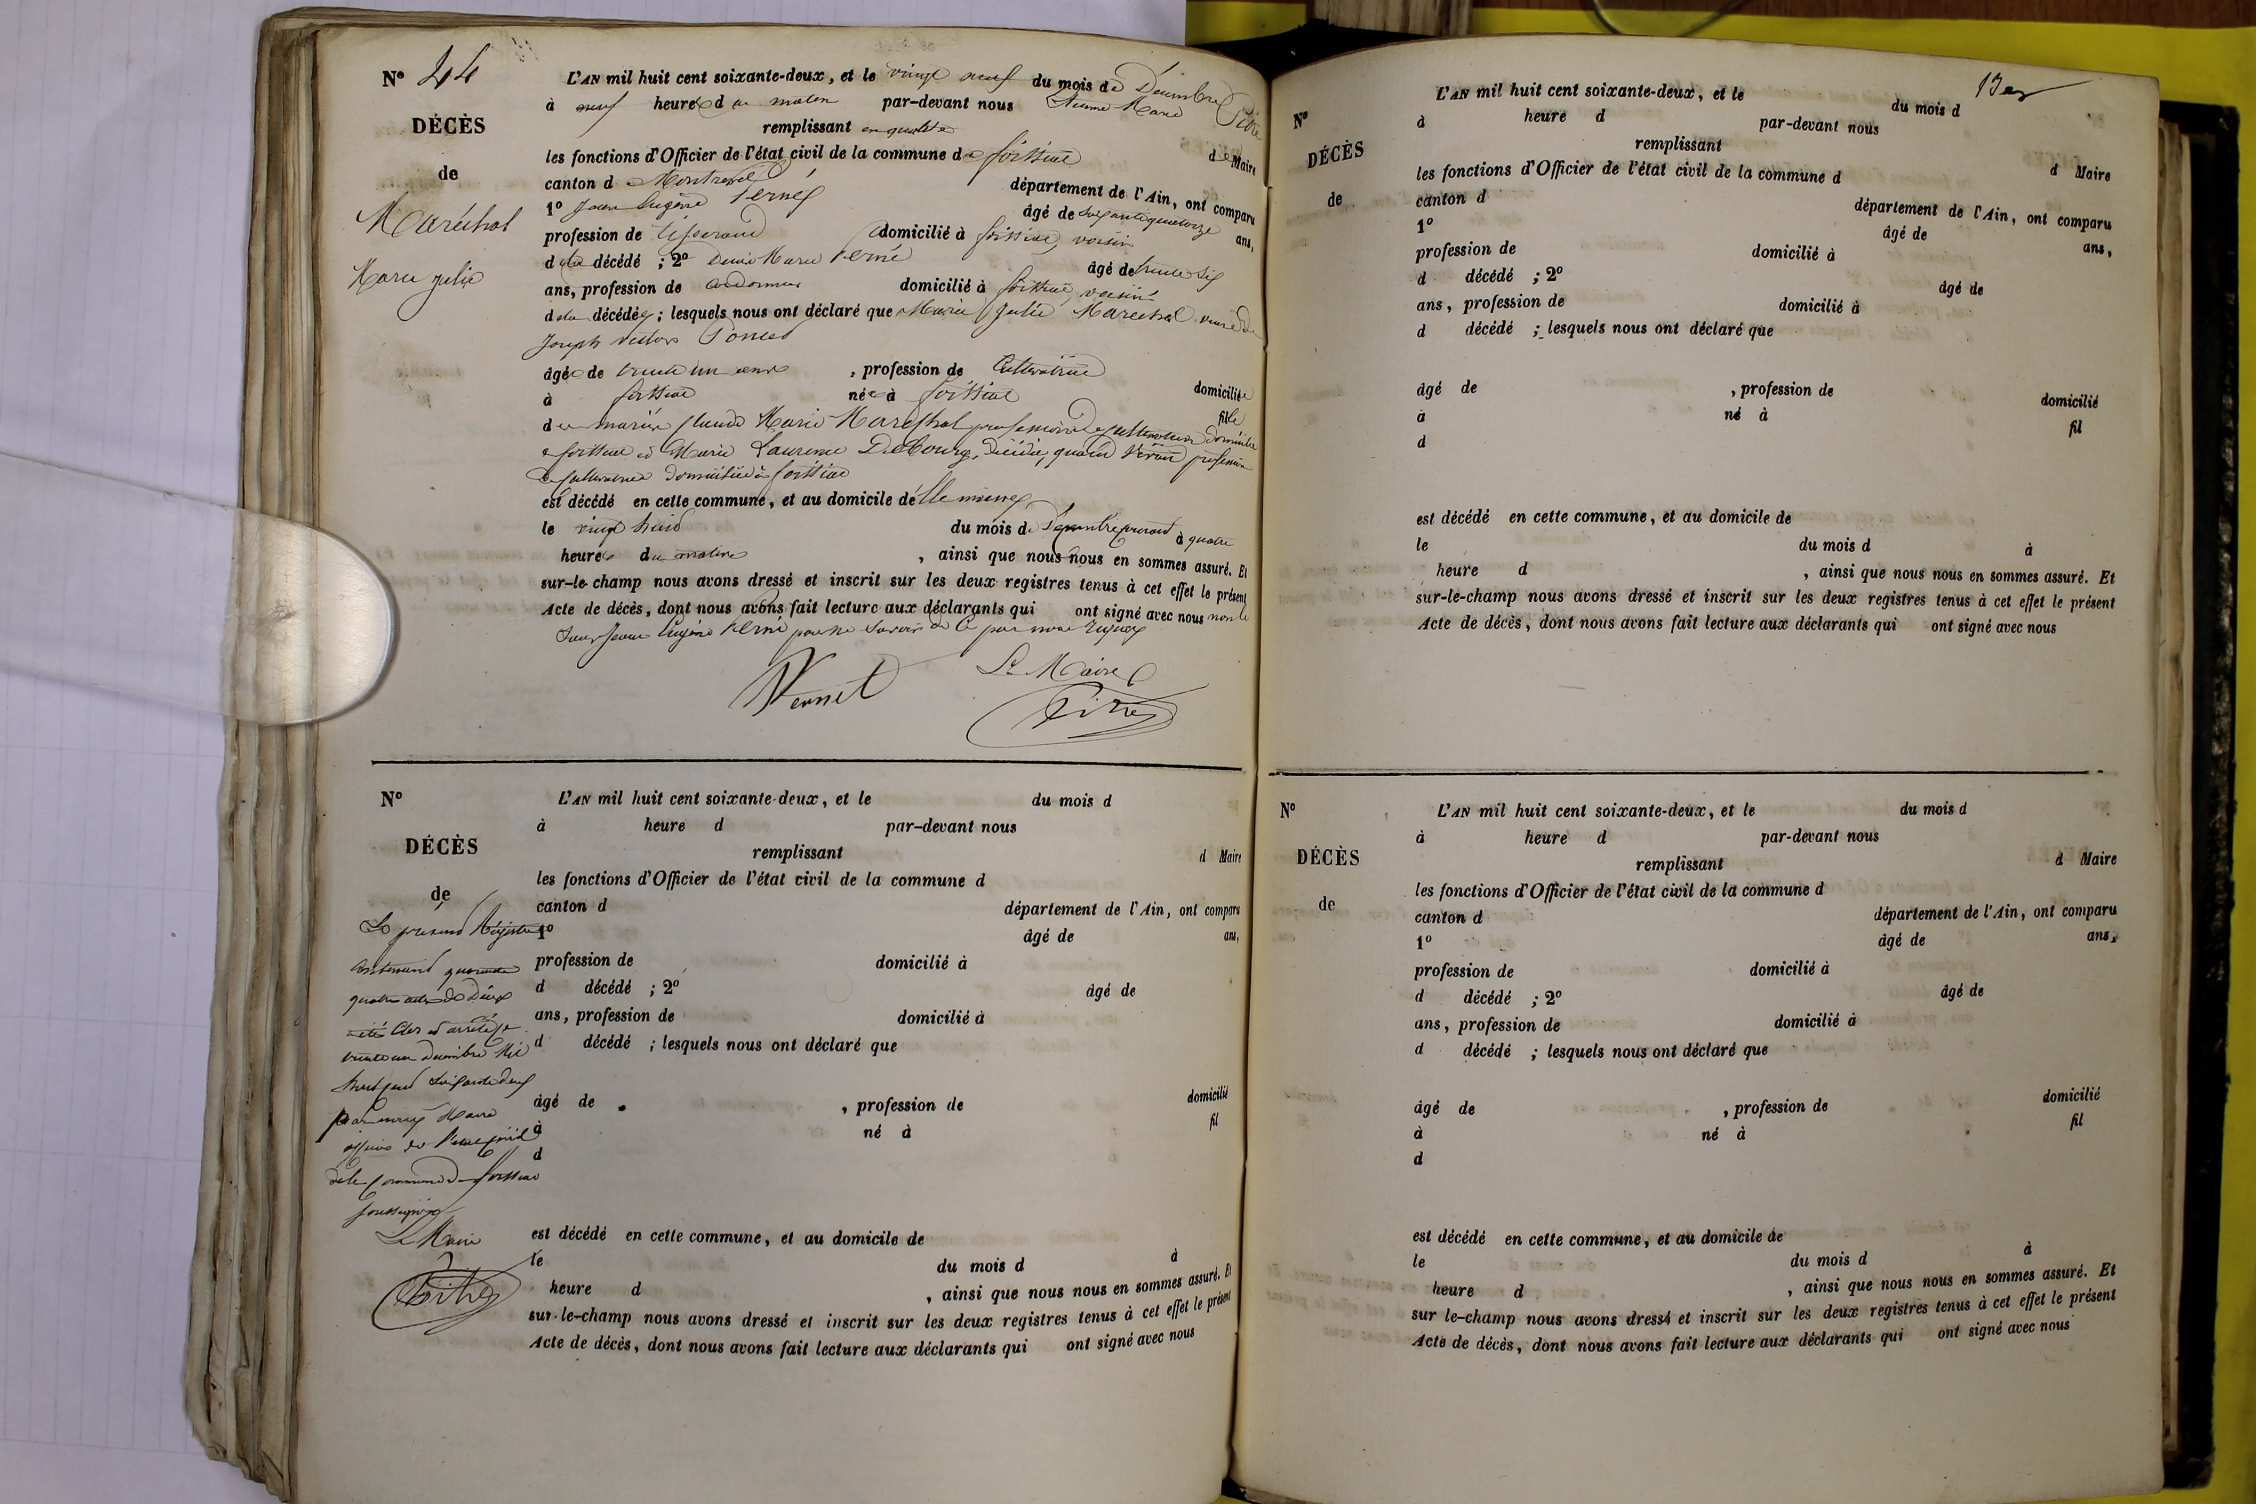 N° 44
DÉCÈS
de
Maréchal
Marie Julie
L'AN mil huit cent soixante-deux, et le vingt neuf du mois de Décembre
à neuf heures du matin par-devant nous Marie Pitre
remplissant en qualité de Maire
les fonctions d'Officier de l'état civil de la commune de foissiat
canton de Montrevel département de l'Ain, ont comparu
1° Jean Eugène Perné âgé de soixante quatorze ans,
profession de tisserand domicilié à foissiat, voisin
de la décédé ; 2° Denis Marie Perné âgé de trente six
ans, profession de cordonnier domicilié à foissiat, voisin
de la décédée ; lesquels nous ont déclaré que Marie Julie Maréchal veuve de
Joseph Victor Poncet
âgée de trente un ans , profession de Cultivatrice
domiciliée à foissiat née à foissiat
fille de Claude Marie Maréchal profession de cultivateur domicilié
à foissiat et Marie Laurence Debourg, décédée, quand vivait profession
de cultivatrice domiciliée à foissiat
est décédé en cette commune, et au domicile d'elle même
le vingt huit du mois de Décembre courant à quatre
heures du matin , ainsi que nous nous en sommes assuré. Et
sur-le-champ nous avons dressé et inscrit sur les deux registres tenus à cet effet le présent
Acte de décès, dont nous avons fait lecture aux déclarants qui ont signé avec nous non le
Sieur Jean Eugène Perné pour ne savoir de ce par nous requis
Vernet
Le Maire
Pitre
N°
DÉCÈS
de
Le présent Registre
contenant quarante
quatre actes de Décès
a été Clos et arrêté le
trente un décembre Mil
huit cent soixante deux
par nous Maire
officier de l'état civil
de la commune de foissiat
soussigné
Le Maire
Pitre
L'AN mil huit cent soixante-deux, et le du mois d
à heure d par-devant nous
remplissant d Maire
les fonctions d'Officier de l'état civil de la commune d
canton d département de l'Ain, ont comparu
1° âgé de ans,
profession de domicilié à
d décédé ; 2° âgé de
ans, profession de domicilié à
d décédé ; lesquels nous ont déclaré que
âgé de , profession de domicilié
à né à fil
d
est décédé en cette commune, et au domicile de
le du mois d à
heure d , ainsi que nous nous en sommes assuré. Et
sur-le-champ nous avons dressé et inscrit sur les deux registres tenus à cet effet le présent
Acte de décès, dont nous avons fait lecture aux déclarants qui ont signé avec nous
N°
DÉCÈS
de
L'AN mil huit cent soixante-deux, et le du mois d
à heure d par-devant nous
remplissant d Maire
les fonctions d'Officier de l'état civil de la commune d
canton d département de l'Ain, ont comparu
1° âgé de ans,
profession de domicilié à
d décédé ; 2° âgé de
ans, profession de domicilié à
d décédé ; lesquels nous ont déclaré que
âgé de , profession de domicilié
à né à fil
d
est décédé en cette commune, et au domicile de
le du mois d à
heure d , ainsi que nous nous en sommes assuré. Et
sur-le-champ nous avons dressé et inscrit sur les deux registres tenus à cet effet le présent
Acte de décès, dont nous avons fait lecture aux déclarants qui ont signé avec nous
N°
DÉCÈS
de
L'AN mil huit cent soixante-deux, et le du mois d
à heure d par-devant nous
remplissant d Maire
les fonctions d'Officier de l'état civil de la commune d
canton d département de l'Ain, ont comparu
1° âgé de ans,
profession de domicilié à
d décédé ; 2° âgé de
ans, profession de domicilié à
d décédé ; lesquels nous ont déclaré que
âgé de , profession de domicilié
à né à fil
d
est décédé en cette commune, et au domicile de
le du mois d à
heure d , ainsi que nous nous en sommes assuré. Et
sur le-champ nous avons dressé et inscrit sur les deux registres tenus à cet effet le présent
Acte de décès, dont nous avons fait lecture aux déclarants qui ont signé avec nous